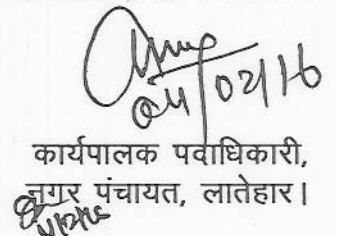 04/02/16
कार्यपालक पदाधिकारी,
नगर पंचायत, लातेहार।